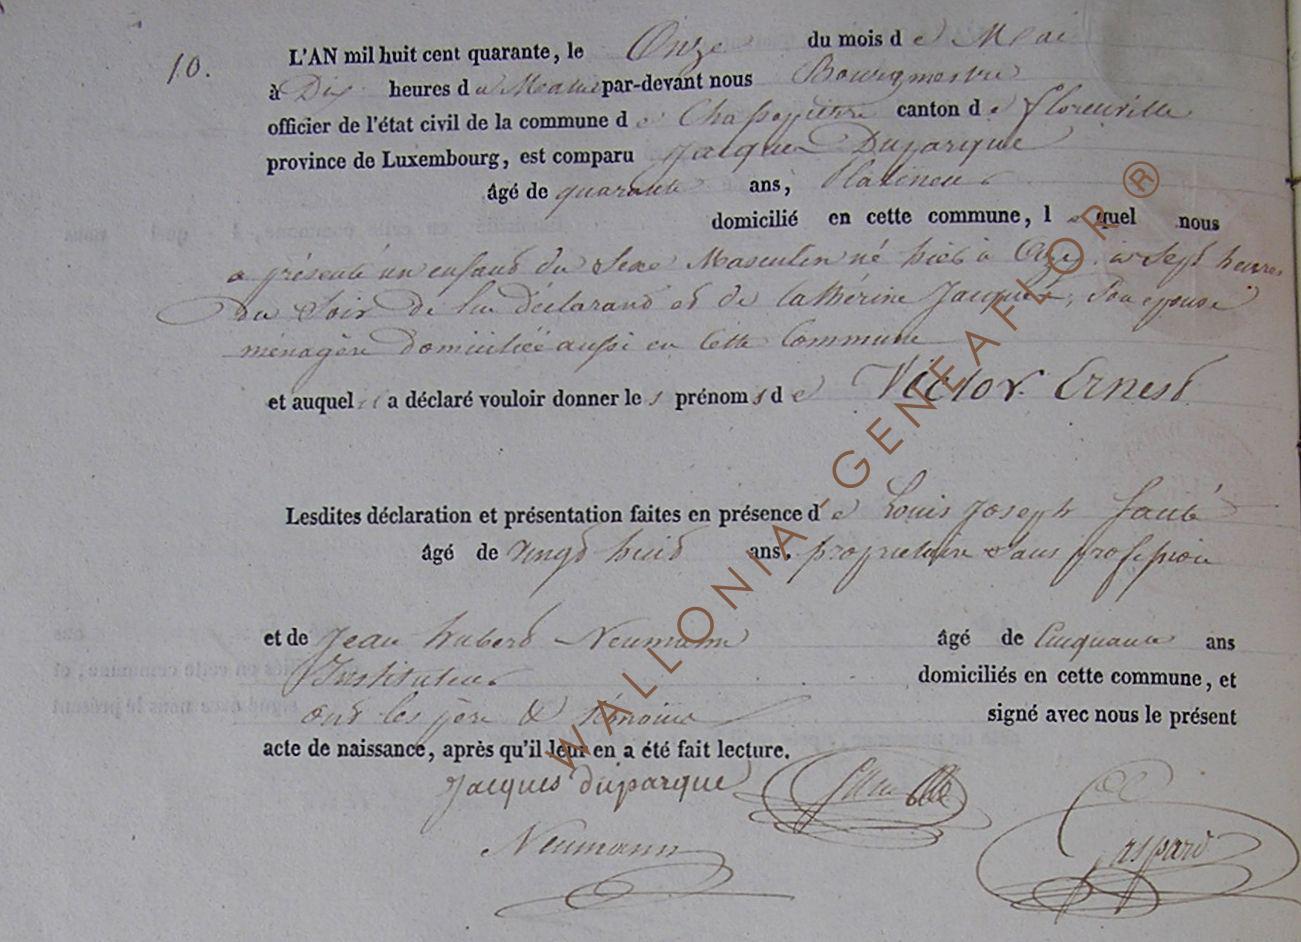 10. L'AN mil huit cent quarante, le Onze du mois de Mai
à Dix heures du Matin par-devant nous Bourgmestre
officier de l'état civil de la commune de Chassepierre canton de Florenville
province de Luxembourg, est comparu Jacques Duparque
âgé de quarante ans, Platineur
domicilié en cette commune, lequel nous
a présenté un enfant du Sexe Masculin né hier à Azy, à Sept heures
Du Soir de lui déclarant et de Cathérine Jacquet, Son épouse
ménagère domiciliée aussi en Cette Commune
et auquel il a déclaré vouloir donner les prénoms de Victor Ernest
Lesdites déclaration et présentation faites en présence de Louis Joseph
âgé de vingt huit ans, propriétaire Sans profession
et de Jean hubert Neumann âgé de Cinquante ans
Instituteur domiciliés en cette commune, et
ont les père & témoins signé avec nous le présent
acte de naissance, après qu'il leur en a été fait lecture.
Jacques duparque
Neumann Gaspard
WALLONIA-GENEAFLOR ®